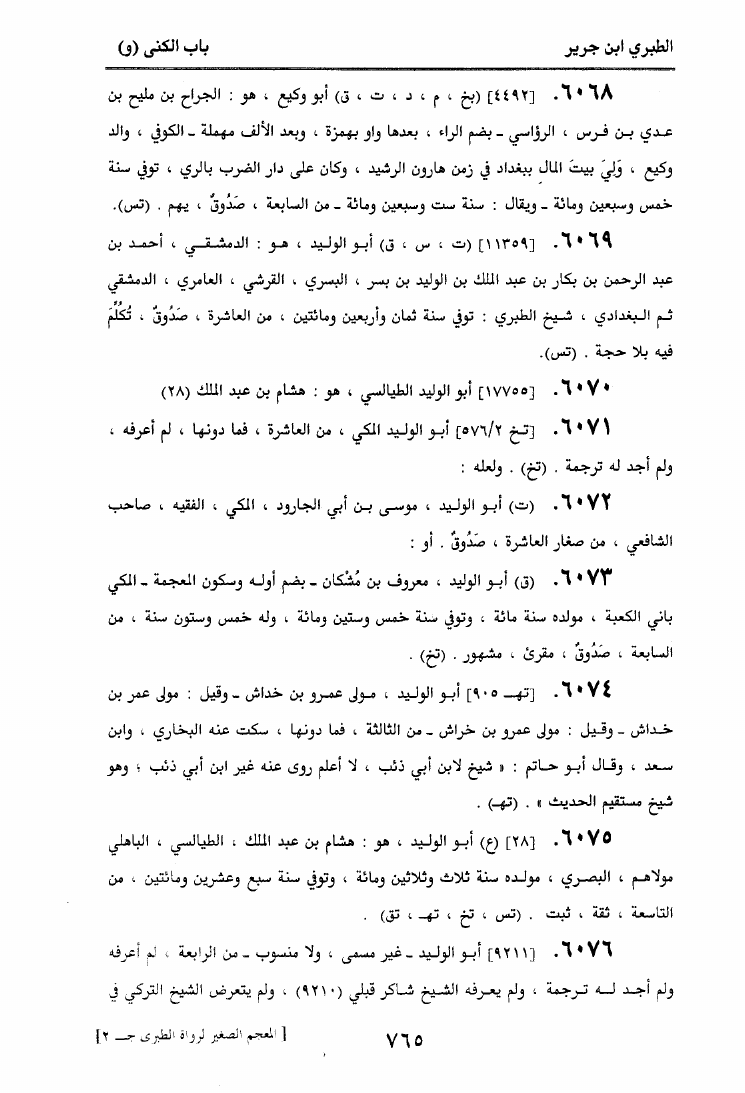 الطبري ابن جرير
باب الكنى (و)
٦٠٦٨. [٤٤٩٢] (بخ ، م ، د ، ت ، ق) أبو وكيع ، هو : الجراح بن مليح بن
عدي بن فرس ، الرؤاسي - بضم الراء ، بعدها واو بهمزة ، وبعد الألف مهملة - الكوفي ، والد
وكيع ، وَلِيَ بيتَ المال ببغداد في زمن هارون الرشيد ، وكان على دار الضرب بالري ، توفي سنة
خمس وسبعين ومائة - ويقال : سنة ست وسبعين ومائة - من السابعة ، صَدُوقٌ ، يهم . (تس).
٦٠٦٩. [١١٣٥٩] (ت ، س ، ق) أبو الوليد ، هو : الدمشقي ، أحمد بن
عبد الرحمن بن بكار بن عبد الملك بن الوليد بن بسر ، البسري ، القرشي ، العامري ، الدمشقي
ثم البغدادي ، شيخ الطبري : توفي سنة ثمان وأربعين ومائتين ، من العاشرة ، صَدُوقٌ ، تُكُلِّمَ
فيه بلا حجة . (تس).
٦٠٧٠. [١٧٧٥٥] أبو الوليد الطيالسي ، هو : هشام بن عبد الملك (٢٨)
٦٠٧١. [تخ ٥٧٦/٢] أبو الوليد المكي ، من العاشرة ، فما دونها ، لم أعرفه ،
ولم أجد له ترجمة . (تخ) . ولعله :
٦٠٧٢. (ت) أبو الوليد ، موسى بن أبي الجارود ، المكي ، الفقيه ، صاحب
الشافعي ، من صغار العاشرة ، صَدُوقٌ . أو :
٦٠٧٣. (ق) أبو الوليد ، معروف بن مُشْكان - بضم أوله وسكون المعجمة - المكي
باني الكعبة ، مولده سنة مائة ، وتوفي سنة خمس وستين ومائة ، وله خمس وستون سنة ، من
السابعة ، صَدُوقٌ ، مقرئ ، مشهور . (تخ) .
٦٠٧٤. [تهـ ٩٠٥] أبو الوليد ، مولى عمرو بن خداش - وقيل : مولى عمر بن
خداش - وقيل : مولى عمرو بن خراش - من الثالثة ، فما دونها ، سكت عنه البخاري ، وابن
سعد ، وقال أبو حاتم : « شيخ لابن أبي ذئب ، لا أعلم روى عنه غير ابن أبي ذئب ؛ وهو
شيخ مستقيم الحديث » . (تهـ) .
٦٠٧٥. [٢٨] (ع) أبو الوليد ، هو : هشام بن عبد الملك ، الطيالسي ، الباهلي
مولاهم ، البصري ، مولده سنة ثلاث وثلاثين ومائة ، وتوفي سنة سبع وعشرين ومائتين ، من
التاسعة ، ثقة ، ثبت . (تس ، تخ ، تهـ ، تق) .
٦٠٧٦. [٩٢١١] أبو الوليد - غير مسمى ، ولا منسوب - من الرابعة ، لم أعرفه
ولم أجد له ترجمة ، ولم يعرفه الشيخ شاكر قبلي (٩٢١٠) ، ولم يتعرض الشيخ التركي في
٧٦٥
[المعجم الصغير لرواة الطبري جـ ٢]